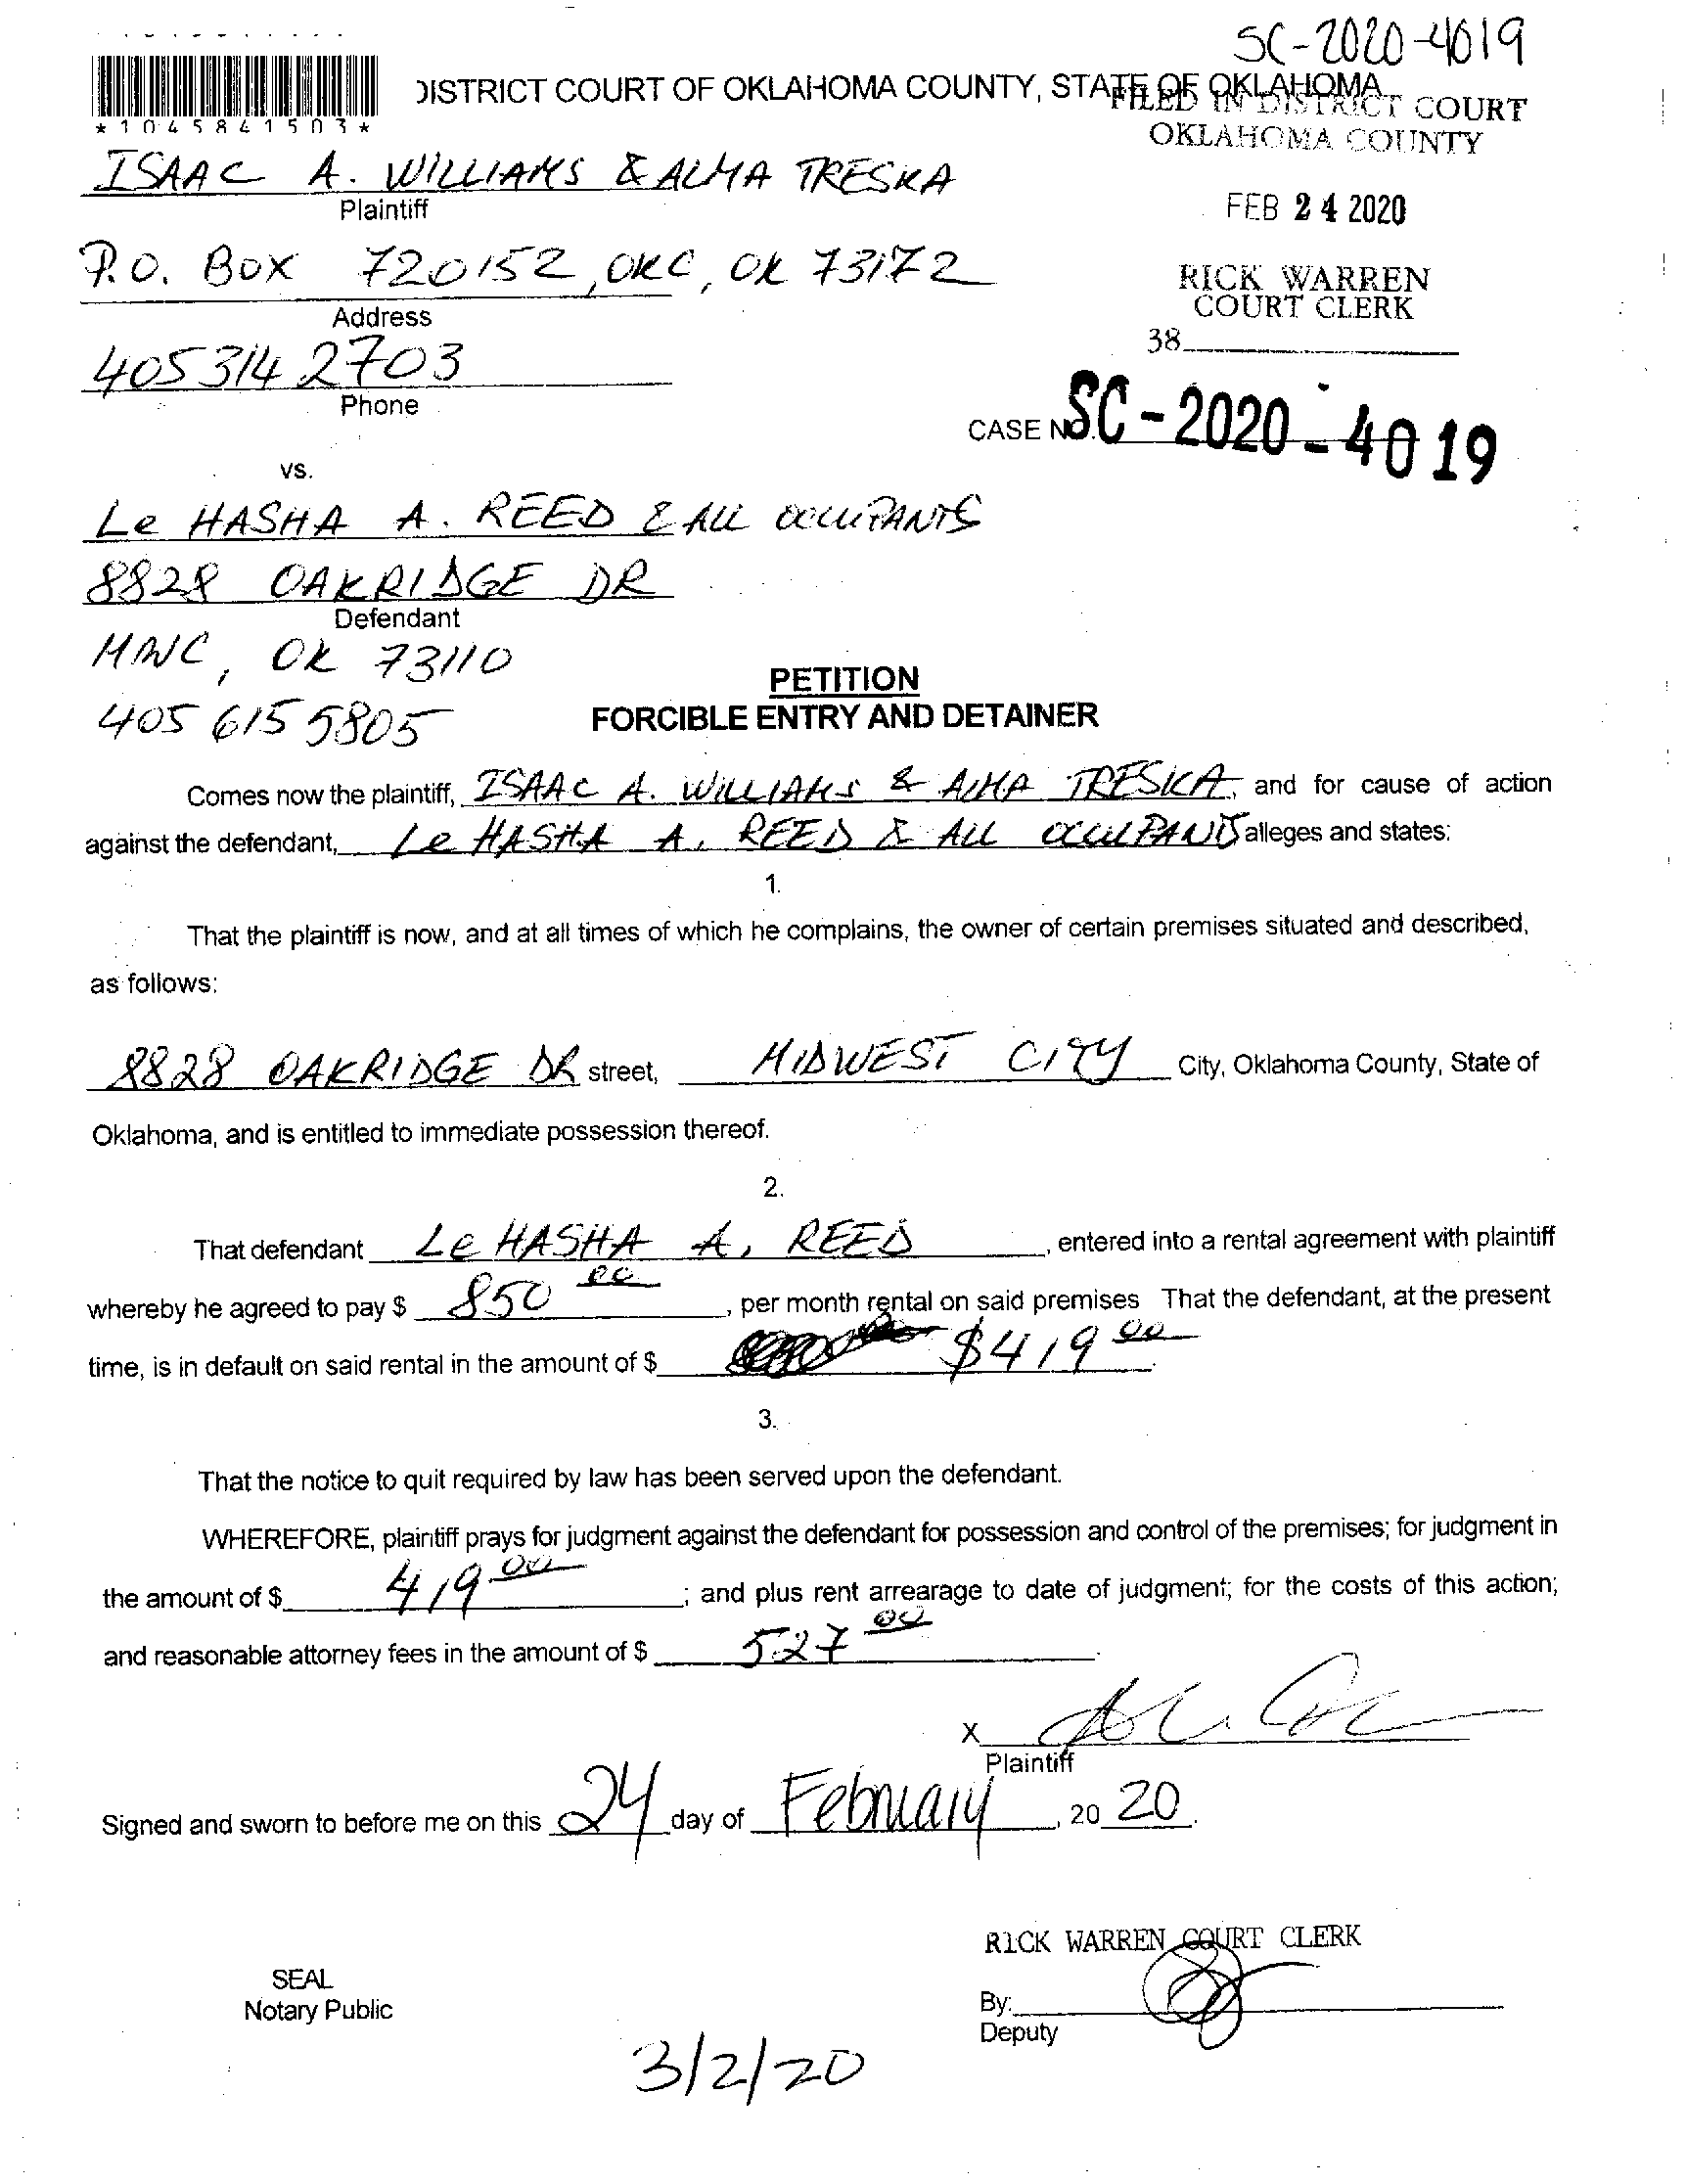 SC-2020-4019
DISTRICT COURT OF OKLAHOMA COUNTY, STATE OF OKLAHOMA
FILED IN DISTRICT COURT
OKLAHOMA COUNTY
*1045841503*
ISAAC A. WILLIAMS & ALMA TRESKA
Plaintiff
FEB 24 2020
P.O. BOX 720152, OKC, OK 73172
Address
RICK WARREN
COURT CLERK
38
405 314 2703
Phone
CASE NO. SC-2020-4019
vs.
Le HASHA A. REED & ALL OCCUPANTS
8828 OAKRIDGE DR
Defendant
MWC, OK 73110
405 615 5805
PETITION
FORCIBLE ENTRY AND DETAINER
Comes now the plaintiff, ISAAC A. WILLIAMS & ALMA TRESKA, and for cause of action
against the defendant, Le HASHA A. REED & ALL OCCUPANTS alleges and states:
1.
That the plaintiff is now, and at all times of which he complains, the owner of certain premises situated and described,
as follows:
8828 OAKRIDGE DR street, MIDWEST CITY City, Oklahoma County, State of
Oklahoma, and is entitled to immediate possession thereof.
2.
That defendant Le HASHA A. REED, entered into a rental agreement with plaintiff
whereby he agreed to pay $ 850 00, per month rental on said premises That the defendant, at the present
time, is in default on said rental in the amount of $ $419 00.
3.
That the notice to quit required by law has been served upon the defendant.
WHEREFORE, plaintiff prays for judgment against the defendant for possession and control of the premises; for judgment in
the amount of $ 419.00; and plus rent arrearage to date of judgment; for the costs of this action;
and reasonable attorney fees in the amount of $ 527 00.
X
Plaintiff
Signed and sworn to before me on this 24 day of February, 20 20.
RICK WARREN COURT CLERK
SEAL
Notary Public
By:
Deputy
3/2/20